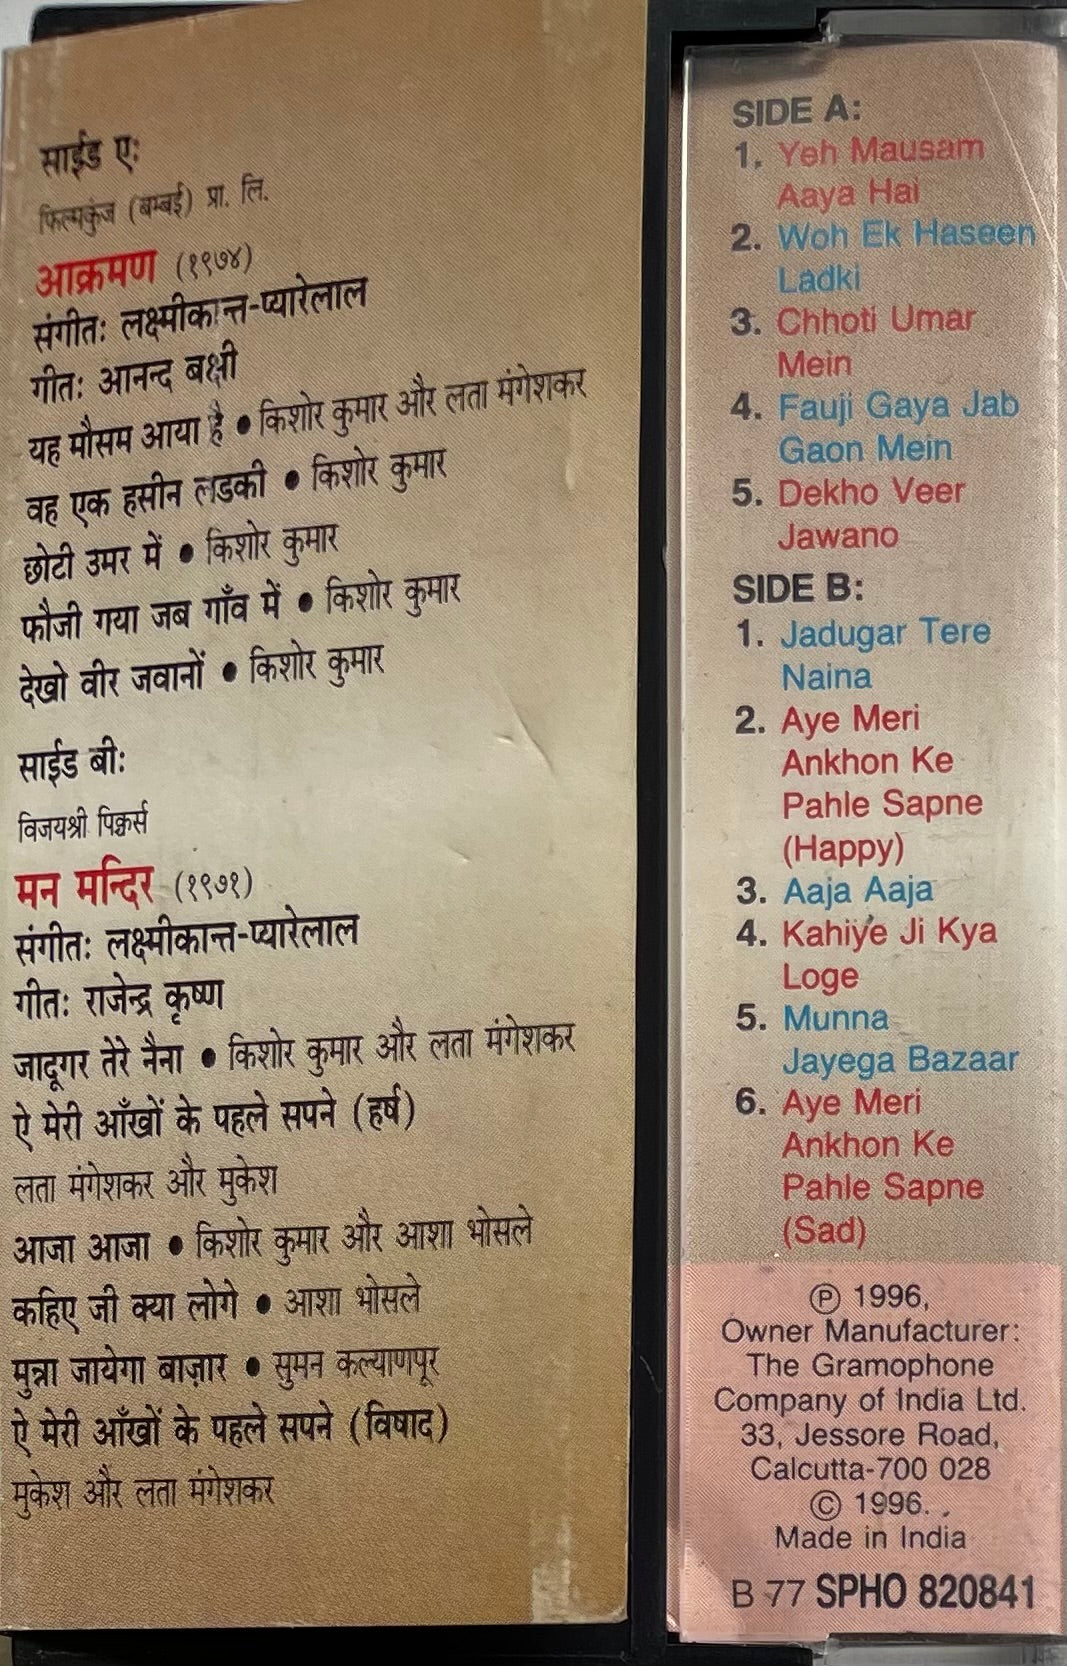 साईड ए:
फिल्मकुंज (बम्बई) प्रा. लि.
आक्रमण (१९७४)
संगीत: लक्ष्मीकान्त-प्यारेलाल
गीत: आनन्द बक्षी
यह मौसम आया है ● किशोर कुमार और लता मंगेशकर
वह एक हसीन लडकी ● किशोर कुमार
छोटी उमर में ● किशोर कुमार
फौजी गया जब गाँव में ● किशोर कुमार
देखो वीर जवानों ● किशोर कुमार
साईड बी:
विजयश्री पिक्चर्स
मन मन्दिर (१९७१)
संगीत: लक्ष्मीकान्त-प्यारेलाल
गीत: राजेन्द्र कृष्ण
जादूगर तेरे नैना ● किशोर कुमार और लता मंगेशकर
ऐ मेरी आँखों के पहले सपने (हर्ष)
लता मंगेशकर और मुकेश
आजा आजा ● किशोर कुमार और आशा भोसले
कहिए जी क्या लोगे ● आशा भोसले
मुन्ना जायेगा बाज़ार ● सुमन कल्याणपूर
ऐ मेरी आँखों के पहले सपने (विषाद)
मुकेश और लता मंगेशकर
SIDE A:
1. Yeh Mausam
Aaya Hai
2. Woh Ek Haseen
Ladki
3. Chhoti Umar
Mein
4. Fauji Gaya Jab
Gaon Mein
5. Dekho Veer
Jawano
SIDE B:
1. Jadugar Tere
Naina
2. Aye Meri
Ankhon Ke
Pahle Sapne
(Happy)
3. Aaja Aaja
4. Kahiye Ji Kya
Loge
5. Munna
Jayega Bazaar
6. Aye Meri
Ankhon Ke
Pahle Sapne
(Sad)
℗ 1996,
Owner Manufacturer:
The Gramophone
Company of India Ltd.
33, Jessore Road,
Calcutta-700 028
© 1996.
Made in India
B 77 SPHO 820841